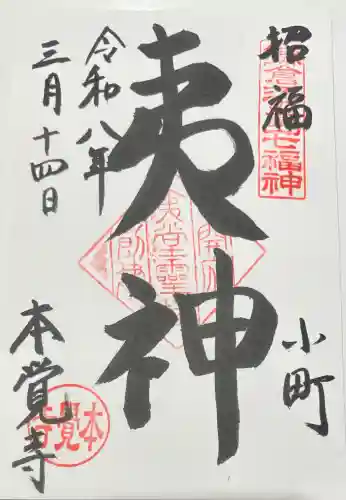 招福
鎌倉江の島七福神
小町
夷神
令和八年
三月十四日
本覚寺
本覺寺